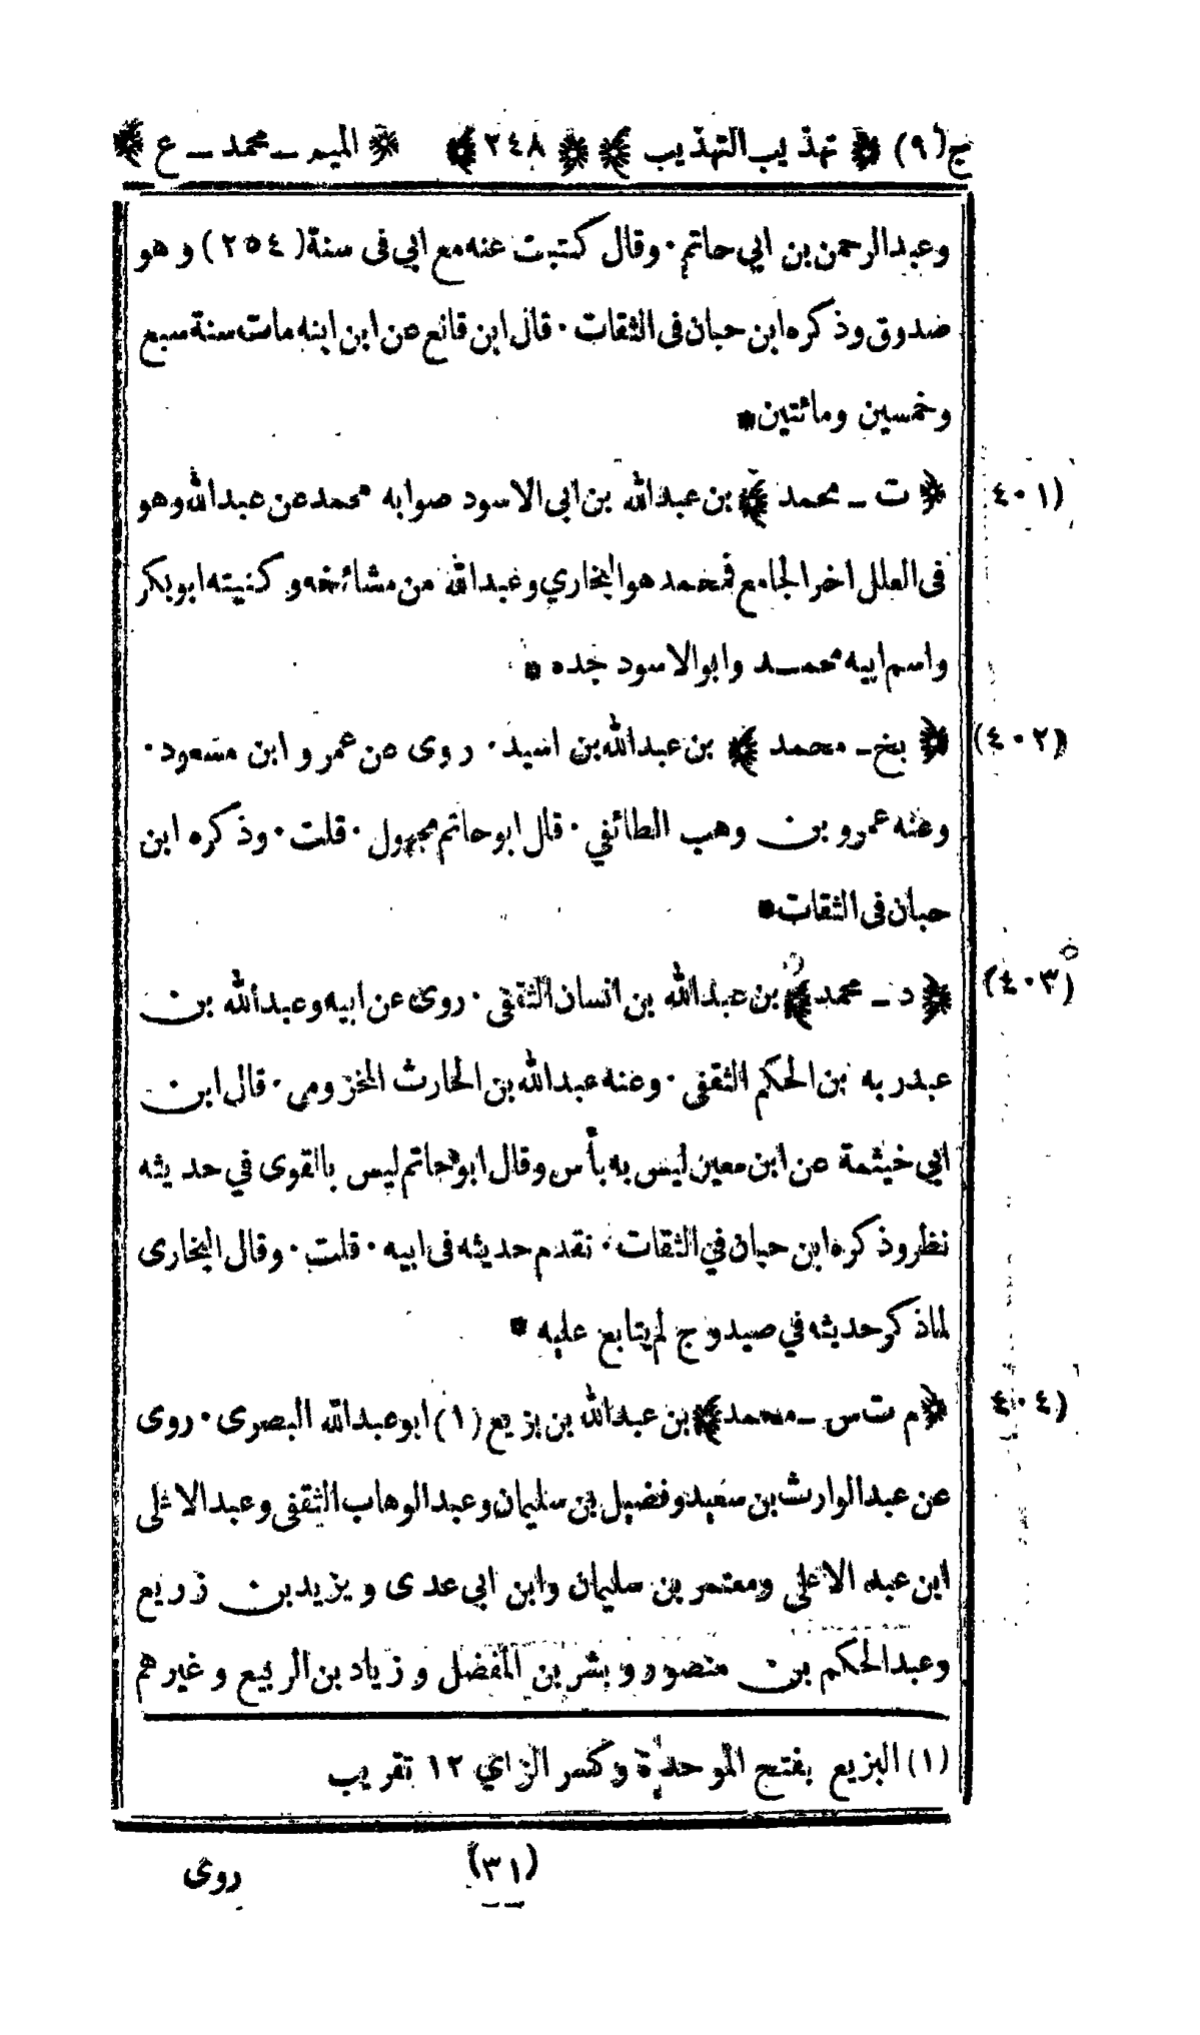 ج (٩) ﴿ تهذيب التهذيب ﴾ ﴿ ٢٤٨ ﴾ ﴿ الميم ـ محمد ـ ع ﴾
وعبدالرحمن بن ابي حاتم · وقال كتبت عنه مع ابي فى سنة (٢٥٤) وهو
صدوق وذكره ابن حبان فى الثقات · قال ابن قانع عن ابن ابنه مات سنة سبع
وخمسين ومائتين *
(٤٠١) ﴿ ت ـ محمد ﴾ بن عبدالله بن ابى الاسود صوابه محمد عن عبدالله وهو
فى العلل اخر الجامع فمحمد هو البخاري وعبدالله من مشائخه وكنيته ابوبكر
واسم ابيه محمد وابوالاسود جده *
(٤٠٢) ﴿ بخ ـ محمد ﴾ بن عبدالله بن اسيد · روى عن عمر و ابن مسعود ·
وعنه عمرو بن وهب الطائفي · قال ابو حاتم مجهول · قلت · وذكره ابن
حبان فى الثقات *
(٤٠٣) ﴿ د ـ محمد ﴾ بن عبدالله بن انسان الثقفى · روى عن ابيه وعبدالله بن
عبدربه بن الحكم الثقفى · وعنه عبدالله بن الحارث المخزومى · قال ابن
ابي خيثمة عن ابن معين ليس به بأس وقال ابوحاتم ليس بالقوى في حديثه
نظر وذكره ابن حبان في الثقات · تقدم حديثه فى ابيه · قلت · وقال البخارى
لماذكر حديثه في صيدوج لم يتابع عليه *
(٤٠٤) ﴿ م ت س ـ محمد ﴾ بن عبدالله بن بزيع (١) ابو عبدالله البصرى · روى
عن عبدالوارث بن سعيد وفضيل بن سليمان وعبدالوهاب الثقفى وعبدالاعلى
ابن عبد الاعلى ومعتمر بن سليمان وابن ابي عدى ويزيد بن زريع
وعبدالحكم بن منصور وبشر بن المفضل وزياد بن الربيع وغيرهم
(١) البزيع بفتح الموحدة وكسر الزاي ١٢ تقريب
(٣١) روى